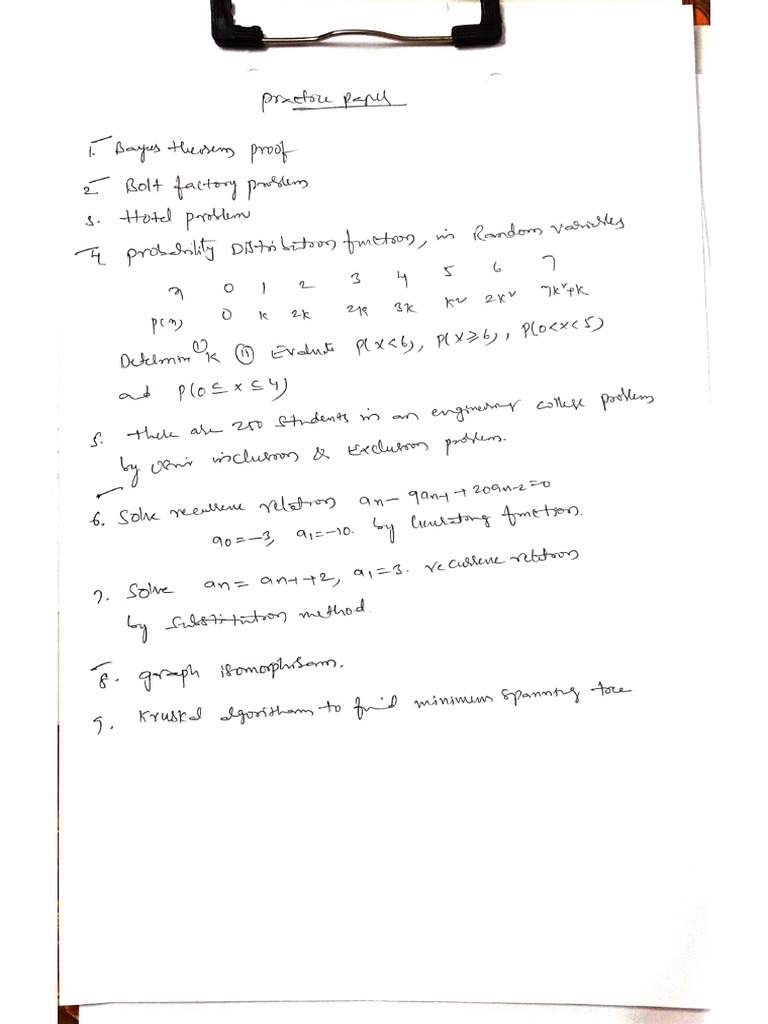 Practice paper
1. Bayes theorem proof
2 Bolt factory problem
3. Hotel problem
4 probability Distribution function, in Random variables
x 0 1 2 3 4 5 6 7
p(x) 0 k 2k 2k 3k k² 2k² 7k²+k
Determine (i) k (ii) Evaluate P(X<6), P(X≥6), P(0<x<5)
and P(0≤x≤4)
5. there are 250 students in an engineering college problem
by using inclusion & Exclusion problem.
6. Solve recurrence relation an-9an-1+20an-2=0
a0=-3, a1=-10. by Generating function.
7. Solve an=an-1+2, a1=3. recurrence relation
by substitution method.
8. graph isomorphism.
9. Kruskal algoritham to find minimum spanning tree